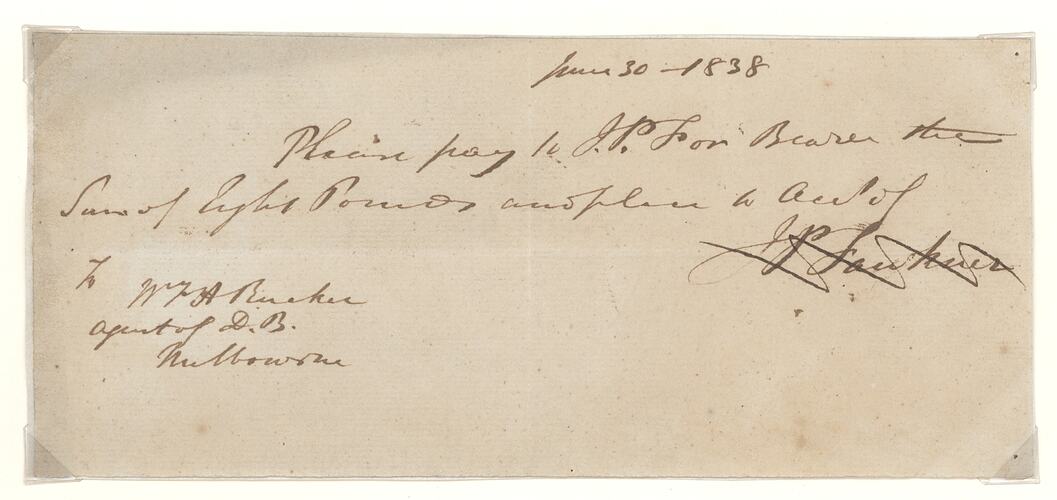 June 30 - 1838
Please pay to J.P.F or Bearer the
Sum of Eight Pounds and place to Act of
J P Fawkner
To
Wm F A Rucker
agent of D.B.
Melbourne